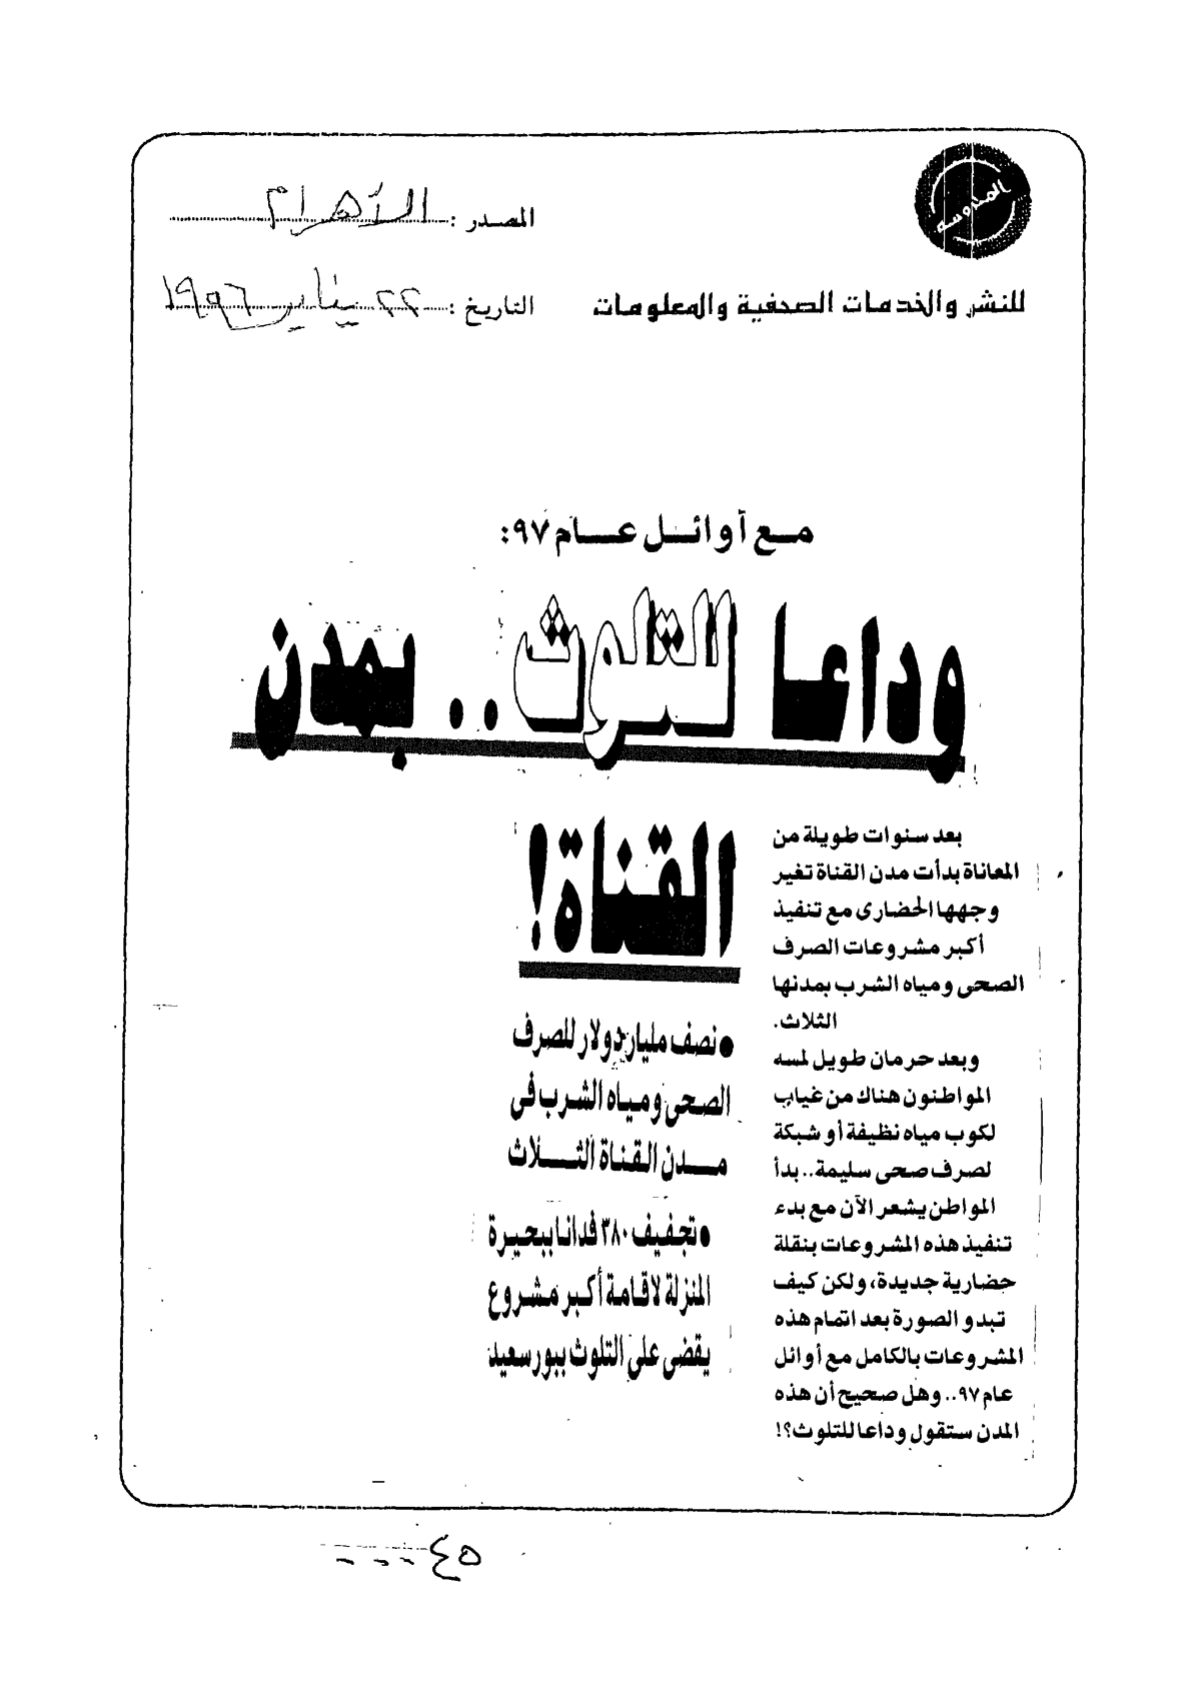 المدوسة
المصدر : الأهرام
للنشر والخدمات الصحفية والمعلومات
التاريخ : ٢٢ يناير ١٩٩٦
مع أوائل عام ٩٧:
وداعا للتلوث .. بمدن
القناة!
بعد سنوات طويلة من
المعاناة بدأت مدن القناة تغير
وجهها الحضارى مع تنفيذ
أكبر مشروعات الصرف
الصحى ومياه الشرب بمدنها
الثلاث.
وبعد حرمان طويل لمسه
المواطنون هناك من غياب
لكوب مياه نظيفة أو شبكة
لصرف صحى سليمة.. بدأ
المواطن يشعر الآن مع بدء
تنفيذ هذه المشروعات بنقلة
حضارية جديدة، ولكن كيف
تبدو الصورة بعد اتمام هذه
المشروعات بالكامل مع أوائل
عام ٩٧.. وهل صحيح أن هذه
المدن ستقول وداعا للتلوث؟!
● نصف مليار دولار للصرف
الصحى ومياه الشرب فى
مدن القناة الثلاث
● تجفيف ٣٨٠ فدانا ببحيرة
المنزلة لاقامة أكبر مشروع
يقضى على التلوث ببورسعيد
٤٥